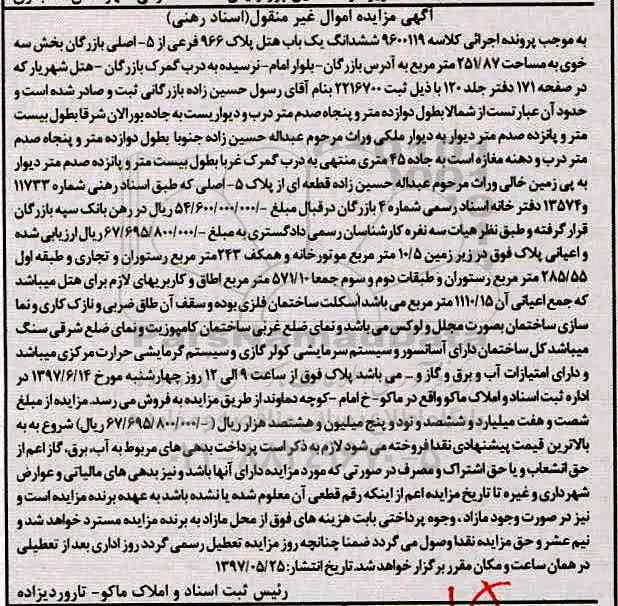 آگهی مزایده اموال غیر منقول(اسناد رهنی)
به موجب پرونده اجرائی کلاسه ۹۶۰۰۱۱۹ ششدانگ یک باب هتل پلاک ۹۶۶ فرعی از ۵- اصلی بازرگان بخش سه
خوی به مساحت ۲۵۱/۸۷ متر مربع به آدرس بازرگان-بلوار امام-نرسیده به درب گمرک بازرگان -هتل شهریار که
در صفحه ۱۷۱ دفتر جلد ۱۲۰ با ذیل ثبت ۲۲۱۶۷۰۰ بنام آقای رسول حسین زاده بازرگانی ثبت و صادر شده است و
حدود آن عبارتست از شمالا بطول دوازده متر و پنجاه صدم متر درب و دیواریست به جاده بورالان شرقا بطول بیست
متر و پانزده صدم متر دیوار به دیوار ملکی وراث مرحوم عبداله حسین زاده جنوبا بطول دوازده متر و پنجاه صدم
متر درب و دهنه مغازه است به جاده ۴۵ متری منتهی به درب گمرک غربا بطول بیست متر و پانزده صدم متر دیوار
به پی زمین خالی وراث مرحوم عبداله حسین زاده قطعه ای از پلاک ۵- اصلی که طبق اسناد رهنی شماره ۱۱۷۳۳
و ۱۳۵۷۴ دفتر خانه اسناد رسمی شماره ۴ بازرگان در قبال مبلغ -/۵۴/۶۰۰/۰۰۰/۰۰۰ ریال در رهن بانک سپه بازرگان
قرار گرفته و طبق نظر هیات سه نفره کارشناسان رسمی دادگستری به مبلغ -/۶۷/۶۹۵/۸۰۰/۰۰۰ ریال ارزیابی شده
و اعیانی پلاک فوق در زیر زمین ۱۰/۵ متر مربع موتورخانه و همکف ۲۴۳ متر مربع رستوران و تجاری و طبقه اول
۲۸۵/۵۵ متر مربع رستوران و طبقات دوم و سوم جمعا ۵۷۱/۱۰ متر مربع اطاق و کاربریهای لازم برای هتل میباشد
که جمع اعیانی آن ۱۱۱۰/۱۵ متر مربع می باشد اسکلت ساختمان فلزی بوده و سقف آن طاق ضربی و نازک کاری و نما
سازی ساختمان بصورت مجلل و لوکس می باشد و نمای ضلع غربی ساختمان کامپوزیت و نمای ضلع شرقی سنگ
میباشد کل ساختمان دارای آسانسور و سیستم سرمایشی کولر گازی و سیستم گرمایشی حرارت مرکزی میباشد
و دارای امتیازات آب و برق و گاز و... می باشد پلاک فوق از ساعت ۹ الی ۱۲ روز چهارشنبه مورخ ۱۳۹۷/۶/۱۴ در
اداره ثبت اسناد و املاک ماکو واقع در ماکو-خ امام -کوچه دماوند از طریق مزایده به فروش می رسد. مزایده از مبلغ
شصت و هفت میلیارد و ششصد و نود و پنج میلیون و هشتصد هزار ریال (-/۶۷/۶۹۵/۸۰۰/۰۰۰ ریال) شروع به به
بالاترین قیمت پیشنهادی نقدا فروخته می شود لازم به ذکر است پرداخت بدهی های مربوط به آب، برق، گاز اعم از
حق انشعاب و یا حق اشتراک و مصرف در صورتی که مورد مزایده دارای آنها باشد و نیز بدهی های مالیاتی و عوارض
شهرداری و غیره تا تاریخ مزایده اعم از اینکه رقم قطعی آن معلوم شده یا نشده باشد به عهده برنده مزایده است و
نیز در صورت وجود مازاد، وجوه پرداختی بابت هزینه های فوق از محل مازاد به برنده مزایده مسترد خواهد شد و
نیم عشر و حق مزایده نقدا وصول می گردد ضمنا چنانچه روز مزایده تعطیل رسمی گردد روز اداری بعد از تعطیلی
در همان ساعت و مکان مقرر برگزار خواهد شد. تاریخ انتشار: ۱۳۹۷/۰۵/۲۵
رئیس ثبت اسناد و املاک ماکو- تاروردیزاده